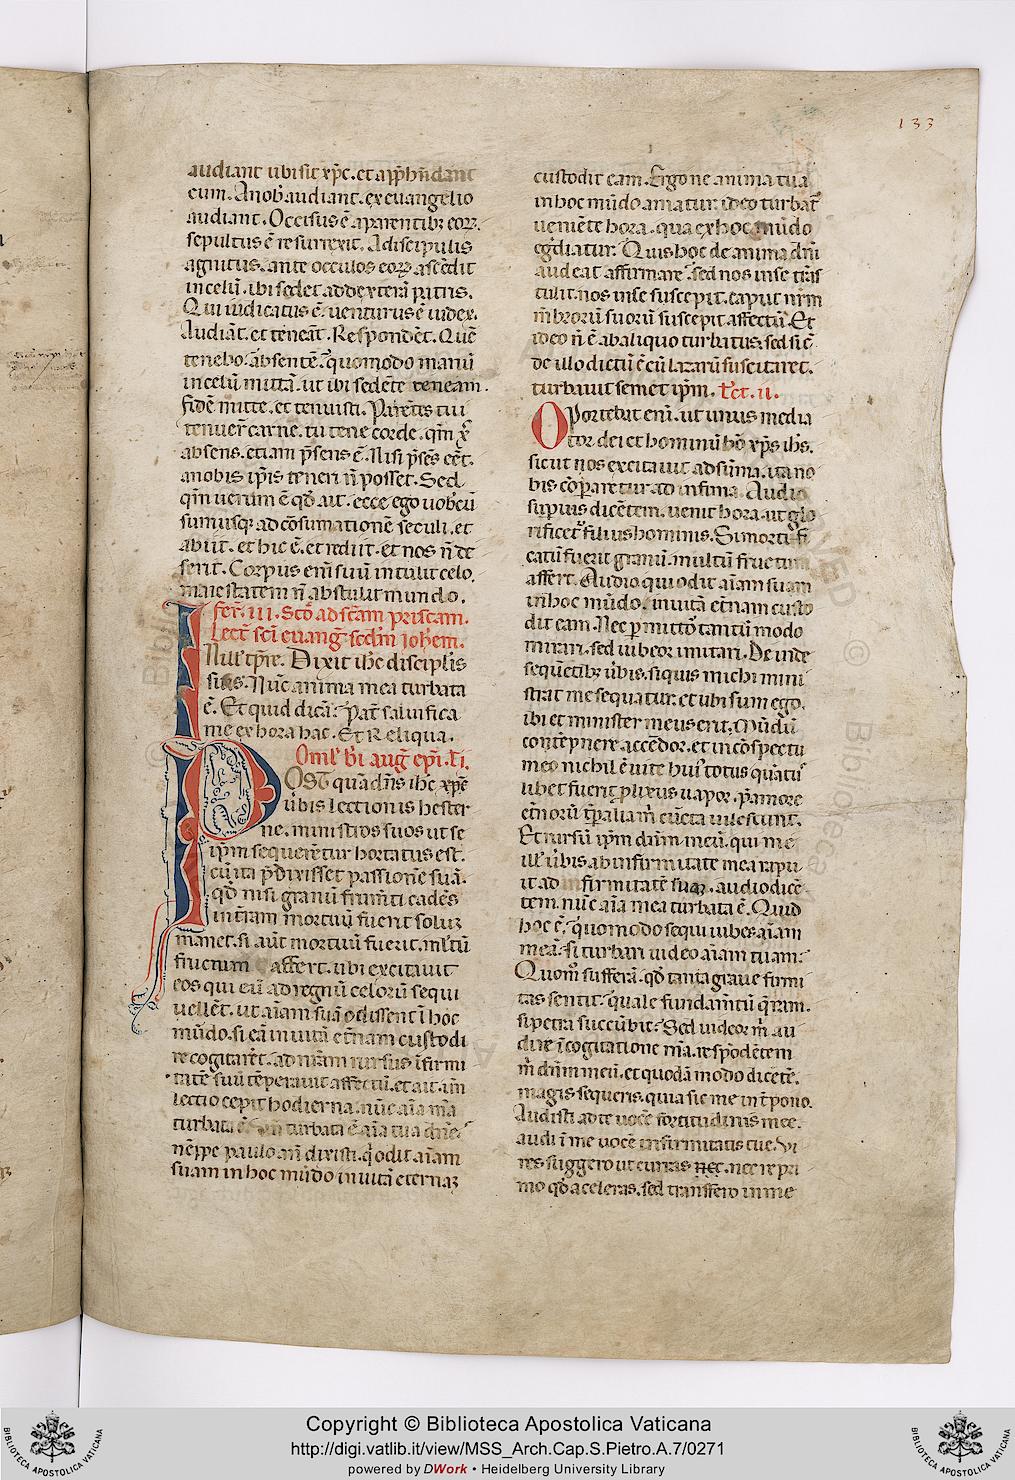 133
audiant ubi sit xp̄c. et app̄hēdant
eum. A nob̄ audiant. ex euangelio
audiant. Occisus ē a parentib; eoꝝ.
sepultus ē resurrexit. A discipulis
agnitus. ante occulos eoꝝ ascēdit
in celū. ibi sedet ad dexterā patris.
Qui iudicatus ē. uenturus ē iudex.
Audiāt. et teneāt. Respondēt. Quē
tenebo. absentē. quomodo manū
in celū mittā. ut ibi sedēte teneam.
fidē mitte. et tenuisti. Parētes tui
tenuer̄ carne. tu tene corde. qm̄ xp̄c
absens. etiam p̄sens ē. Nisi p̄sēs eēt.
a nobis ip̄is teneri n̄ posset. Sed
qm̄ uerum ē qd̄ ait. ecce ego uob̄cū
sum usq; ad cōsumationē seculi. et
abiit. et hic ē. et rediit. et nos n̄ de
seruit. Corpus eni suū intulit celo.
maiestatem n̄ abstulit mundo.
fer̄. iii. Stō ad scām priscam.
Lect̄ scī euanḡ scdm̄ ioh̄em.
In ill̄ tp̄re. Dixit ih̄c discipl̄is
suis. Nūc anima mea turbata
ē. Et quid dicā. Pat̄ saluifica
me ex hora hac. Et Reliqua.
Omil̄ b̄i auḡ ep̄i. l̄i.
POST quā dn̄s ih̄c xp̄c
ūbis lectionis hester
ne. ministros suos ut se
ip̄m sequerētur hortatus est.
cū ita p̄dixisset passionē suā.
qd̄ nisi granū frum̄ti cadēs
in t̄ram mortuū fuerit solū
manet. si aut̄ mortuū fuerit. ml̄tū
fructum affert. ubi excitauit
eos qui eū ad regnū celorū sequi
uellēt. ut aīam suā odissent ī hoc
mūdo. si eā in uitā et̄nam custodi
re cogitarēt. ad nr̄am rursus īfirmi
tatē suū tēperauit affectū. et ait. uñ
lectio cepit hodierna. nūc aīa m̄a
turbata ē. Uñ turbata ē aīa tua dn̄e.
nēpe paulo añ dixisti. q̄ odit aīam
suam in hoc mūdo in uitā eternā
custodit eam. Ergo ne anima tua
in hoc mūdo amatur. ideo turbat̄
ueniēte hora. qua ex hoc mūdo
eḡdiatur. Quis hoc de anima dn̄i
audeat affirmare. sed nos in se trās
tulit. nos in se suscepit. caput nr̄m
m̄brorū suorū suscepit affectū. Et
ideo n̄ ē ab aliquo turbatus. sed sic̄
de illo dictū ē cū lazarū suscitaret.
turbauit semet ip̄m. Lct̄. ii.
Oportebat eni. ut unus media
tor dei et hominū hō xp̄s ih̄s.
sicut nos excitauit ad sūma. ita no
bis cōparetur ad infima. Audio
supius dicētem. uenit hora. ut glo
rificet̄ filius hominis. Si morti fi
catū fuerit granū. multū fructum
affert. Audio qui odit aīam suam
in hoc mūdo. in uitā et̄nam custo
dit eam. Nec p̄mittor̄ tantū modo
mirari. sed iubeor imitari. Deinde
sequētib; ūbis. si quis michi mini
strat me sequatur. et ubi sum ego.
ibi et minister meus erit. Mūdū
contēpnere accēdor. et in cōspectu
meo nichil ē uite hui᷒ totus quātus
libet fuerit plixus uapor. p̄ amore
et̄norū tp̄alia m̄ cūcta uilescunt.
Et rursū ip̄m dn̄m meū. qui me
ill̄ ūbis. ab infirmitate mea rapu
it ad infirmitatē suaꝫ. audio dicē
tem. nūc aīa mea turbata ē. Quid
hoc ē. quomodo sequi iubes aīam
meā. si turbari uideo aīam tuam.
Quom̄ sufferā. qd̄ tanta graue firmi
tas sentit. quale fundam̄tū q̄ram.
si petra succūbit. Sed uideor m̄ au
dire ī cogitatione m̄a. respōdētem
m̄ dn̄m meū. et quodā modo dicētē.
magis sequeris. quia sic me int̄pono.
Audisti ad te uocē fortitudinis mee.
audi ī me uocē infirmitatis tue. Vi
res suggero ut curras nec. nec repri
mo qd̄ aceleras. sed transfero in me
Copyright © Biblioteca Apostolica Vaticana
http://digi.vatlib.it/view/MSS_Arch.Cap.S.Pietro.A.7/0271
powered by DWork • Heidelberg University Library
BIBLIOTECA APOSTOLICA VATICANA
BIBLIOTECA APOSTOLICA VATICANA